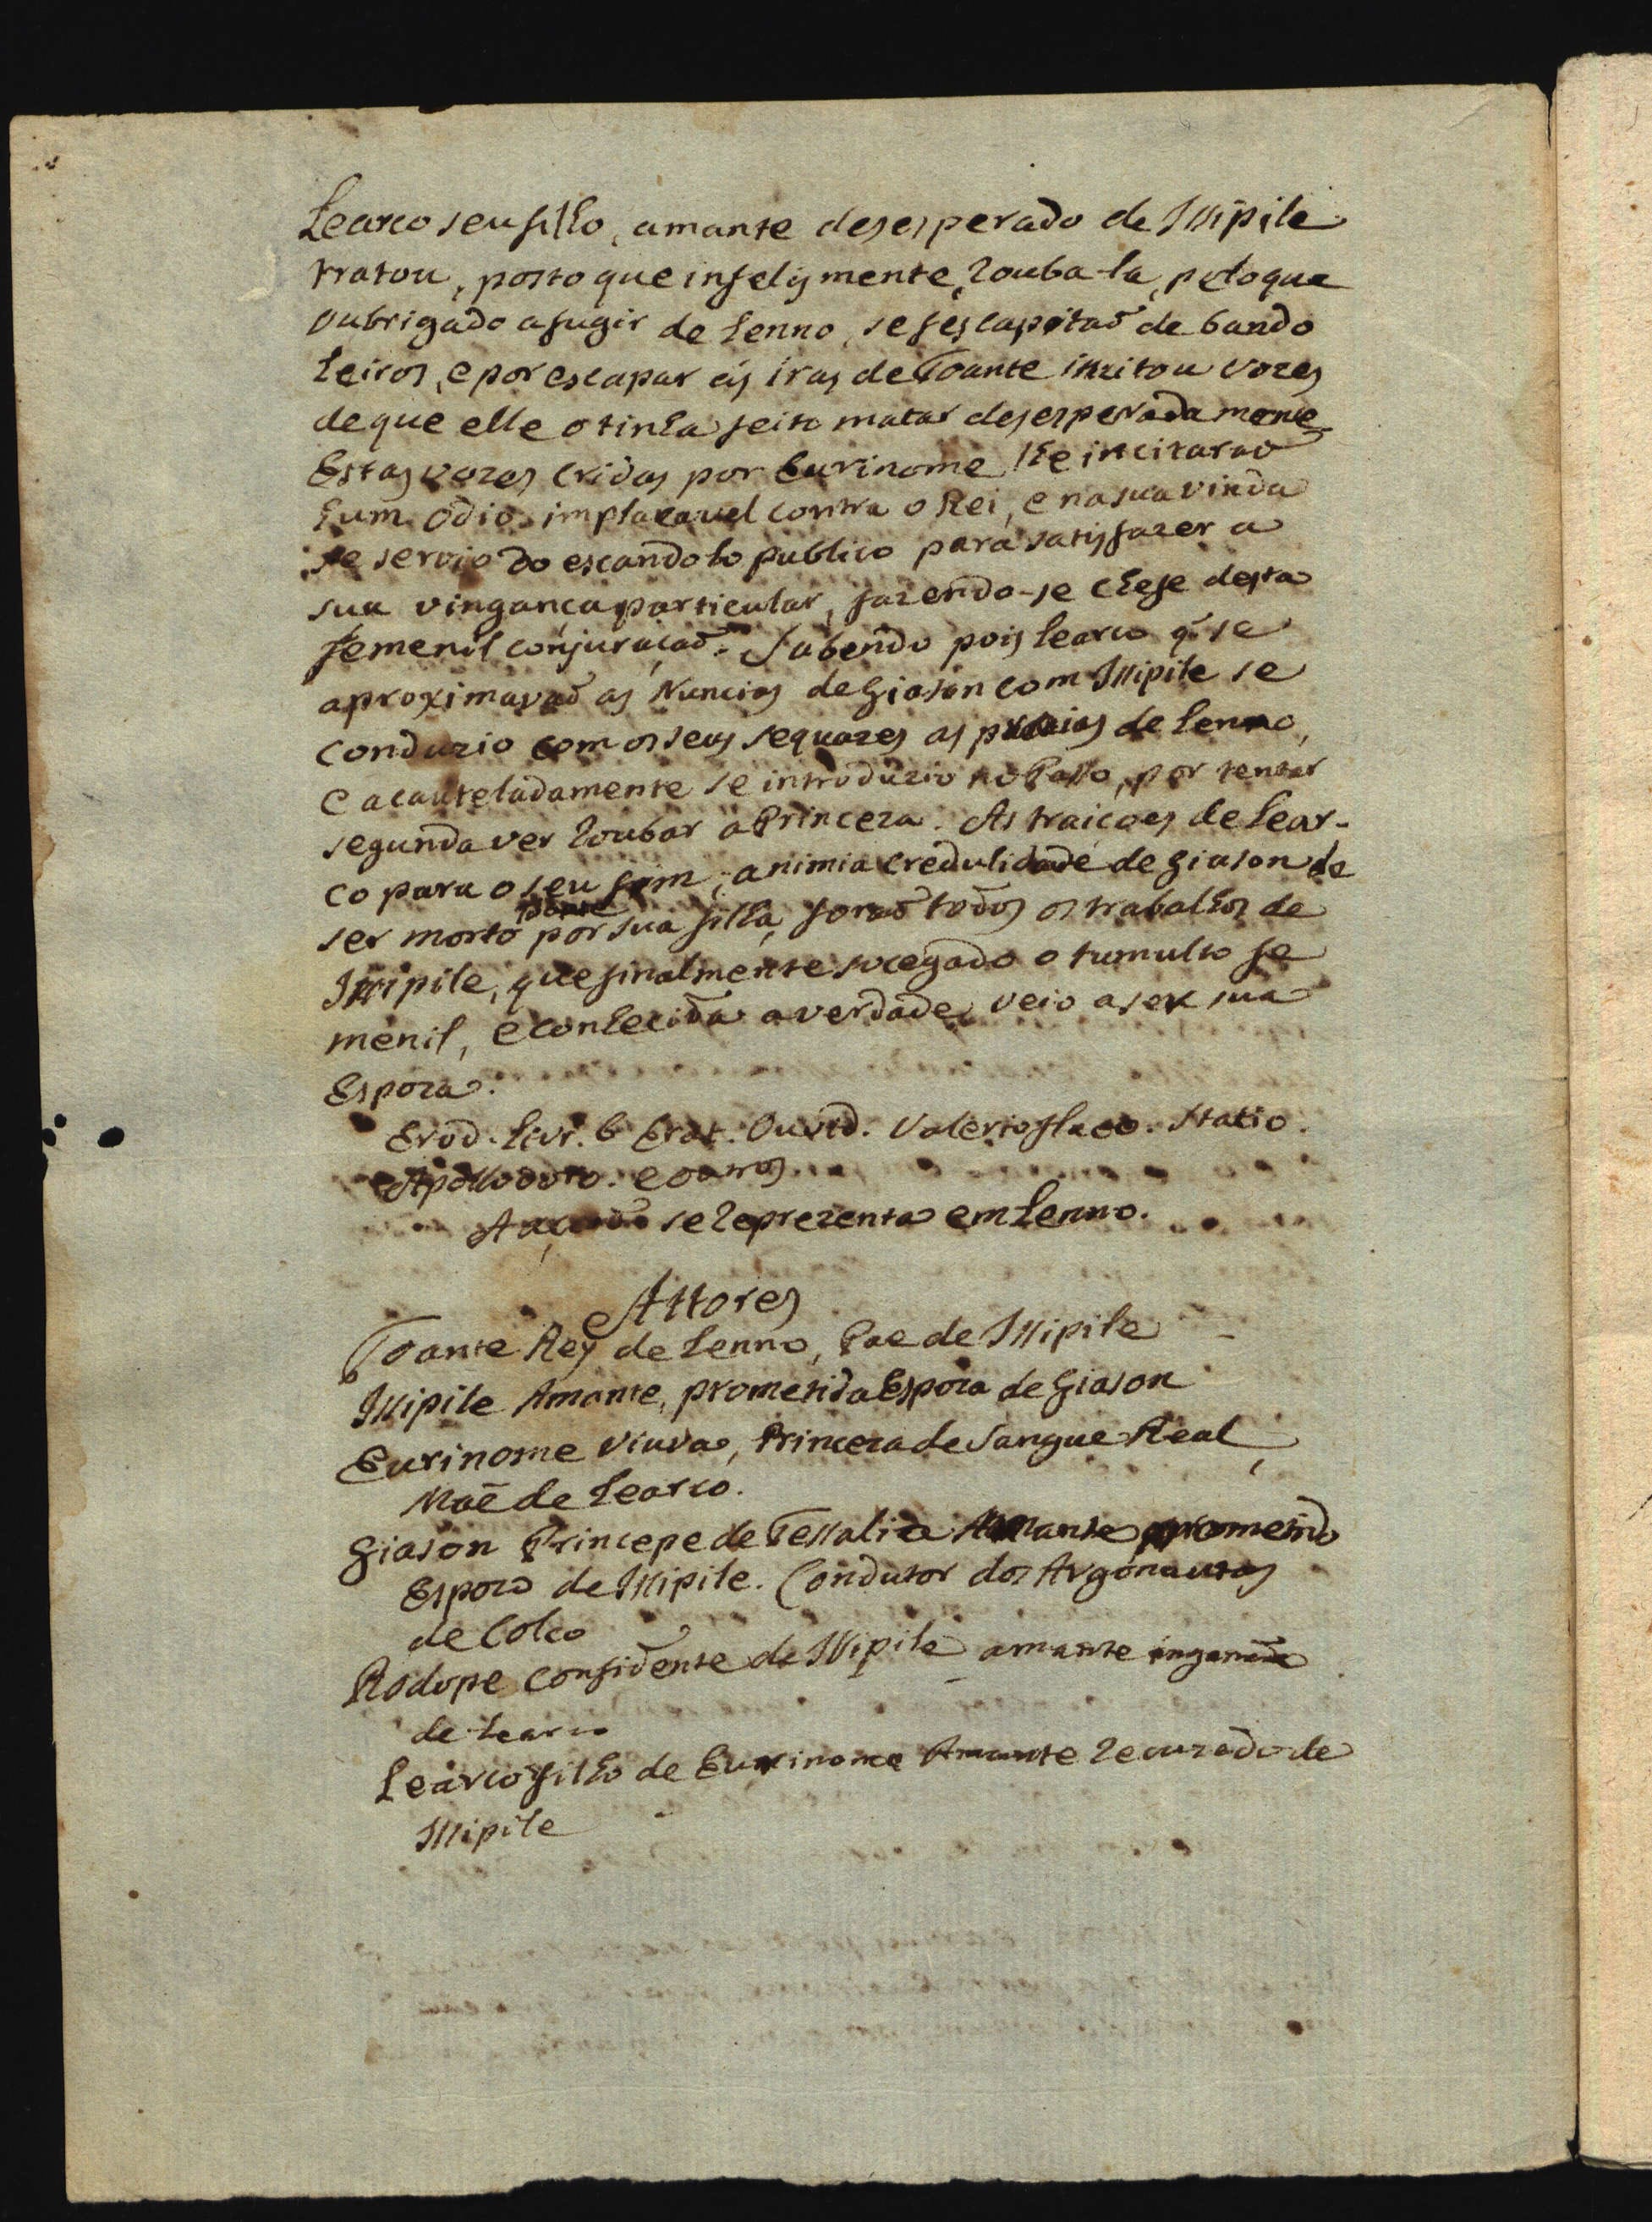 Learco seu filho, amante desesperado de Issipile
tratou, posto que infelizmente, rouba-la, pelo que
oubrigado a fugir de Lenno, se fes capitaõ de bando
leiros, e por escapar ás iras de Toante incitou vozes
de que elle o tinha feito matar desesperadamente
Estas vozes cridas por Eurinome lhe incitaraõ
hum odio implacavel contra o Rei, e na sua vinda
se servio do escandolo publico para satisfazer a
sua vingança particular, fazendo-se chefe desta
femenil conjuraçaõ. Sabendo pois Learco q̃ se
aproximavaõ as Nuncias de Giason com Issipile se
conduzio com os seus sequazes as praias de Lenno,
e acauteladamente se introduzio no Passo, por tentar
segunda vez roubar a Princeza. As traiçoes de Lear-
co para o seu fim; a nimia credulidade de Giason de
ser morto por sua filha, foraõ todos os trabalhos de
Issipile, que finalmente socegado o tumulto fe
menil, e conhecida a verdade, veio a ser sua
Espoza.
Erod. Livr. 6 Erat. Ouvid. Valerio flaco. Statio.
Apollodoro. e outros.
A acçaõ se reprezenta em Lenno.
Attores
Toante Rey de Lenno, Pae de Issipile
Issipile Amante, prometida Espoza de Giason
Eurinome viuva, Princeza de Sangue Real,
Maẽ de Learco.
Giason Princepe de Tessalia Amante prometido
Espozo de Issipile. Condutor dos Argonautas
de Colco
Rodope confidente de Issipile amante inganada
de Learco
Learco filho de Eurinome Amante recuzado de
Issipile